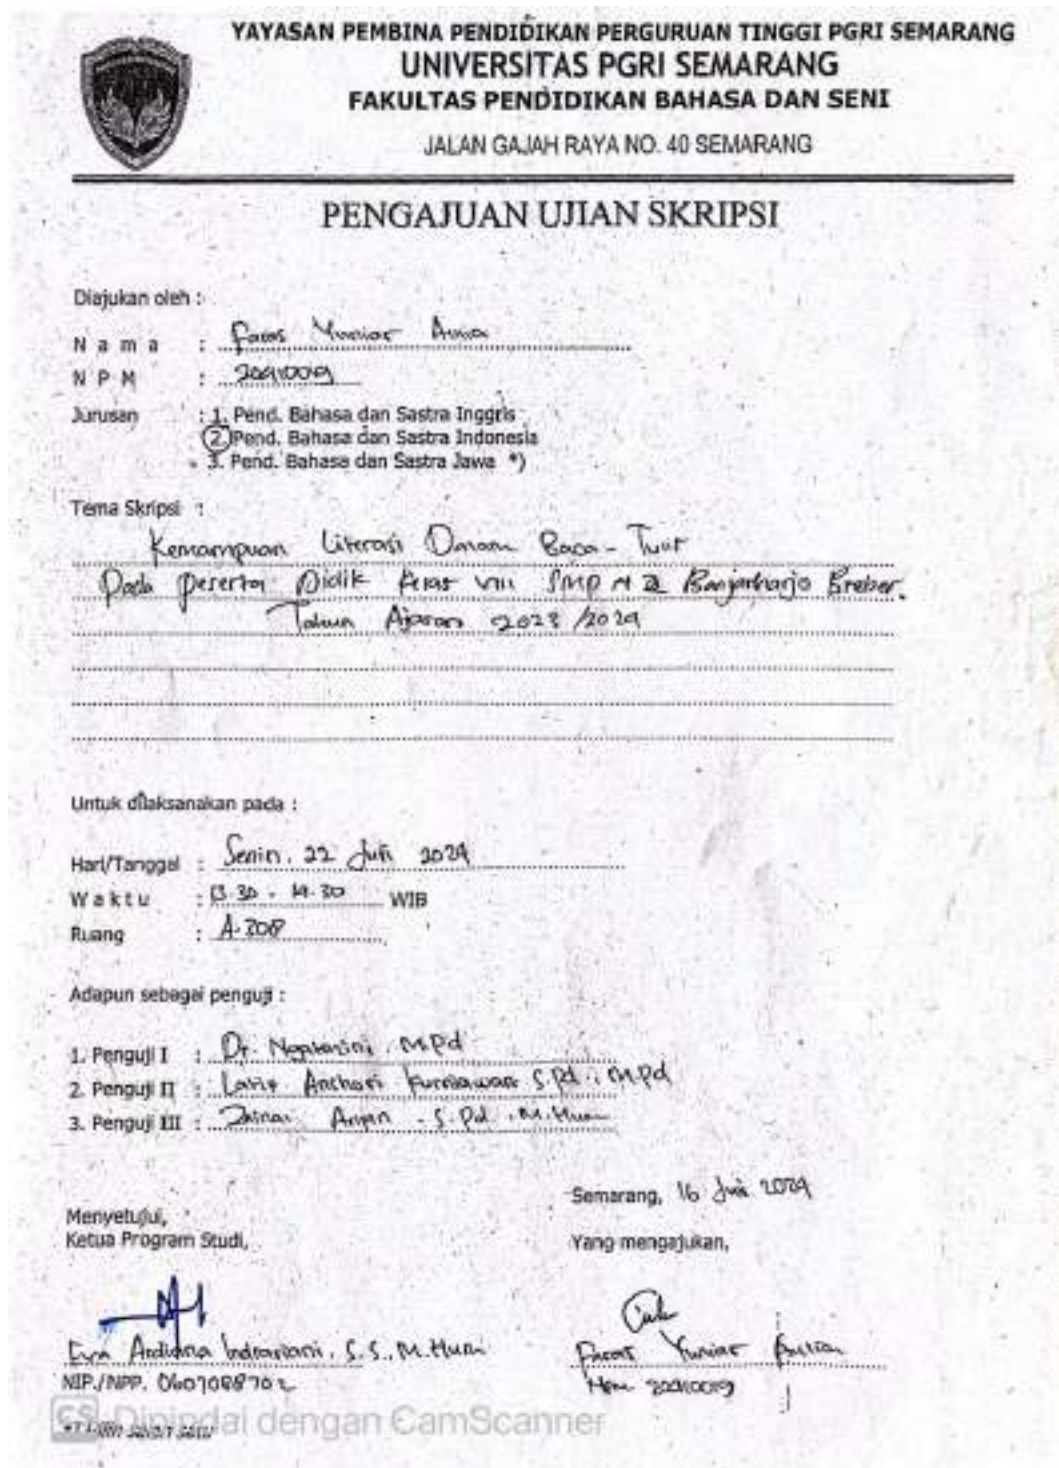 YAYASAN PEMBINA PENDIDIKAN PERGURUAN TINGGI PGRI SEMARANG
UNIVERSITAS PGRI SEMARANG
FAKULTAS PENDIDIKAN BAHASA DAN SENI
JALAN GAJAH RAYA NO. 40 SEMARANG
PENGAJUAN UJIAN SKRIPSI
Diajukan oleh :
N a m a : Faras Yuniar
N P M : 20410019
Jurusan : 1. Pend. Bahasa dan Sastra Inggris
2. Pend. Bahasa dan Sastra Indonesia
3. Pend. Bahasa dan Sastra Jawa *)
Tema Skripsi :
Kemampuan Literasi Dalam Baca - Tulis
Pada Peserta Didik Kelas VIII SMP N 2 Banjarharjo Brebes.
Tahun Ajaran 2023/2024
Untuk dilaksanakan pada :
Hari/Tanggal : Senin, 22 Juli 2024
W a k t u : 13.30 - 14.30 WIB
Ruang : A.308
Adapun sebagai penguji :
1. Penguji I : Dr. Ngatmini M.Pd
2. Penguji II : Latif Anshori Kurniawan S.Pd., M.Pd
3. Penguji III : Zainal Arifin S.Pd. M.Hum
Semarang, 16 Juli 2024
Menyetujui,
Ketua Program Studi,
Yang mengajukan,
Eva Ardiana Indrariani, S.S., M.Hum
NIP./NPP. 0607088702
Faras Yuniar
NPM. 20410019
CS Dipindai dengan CamScanner